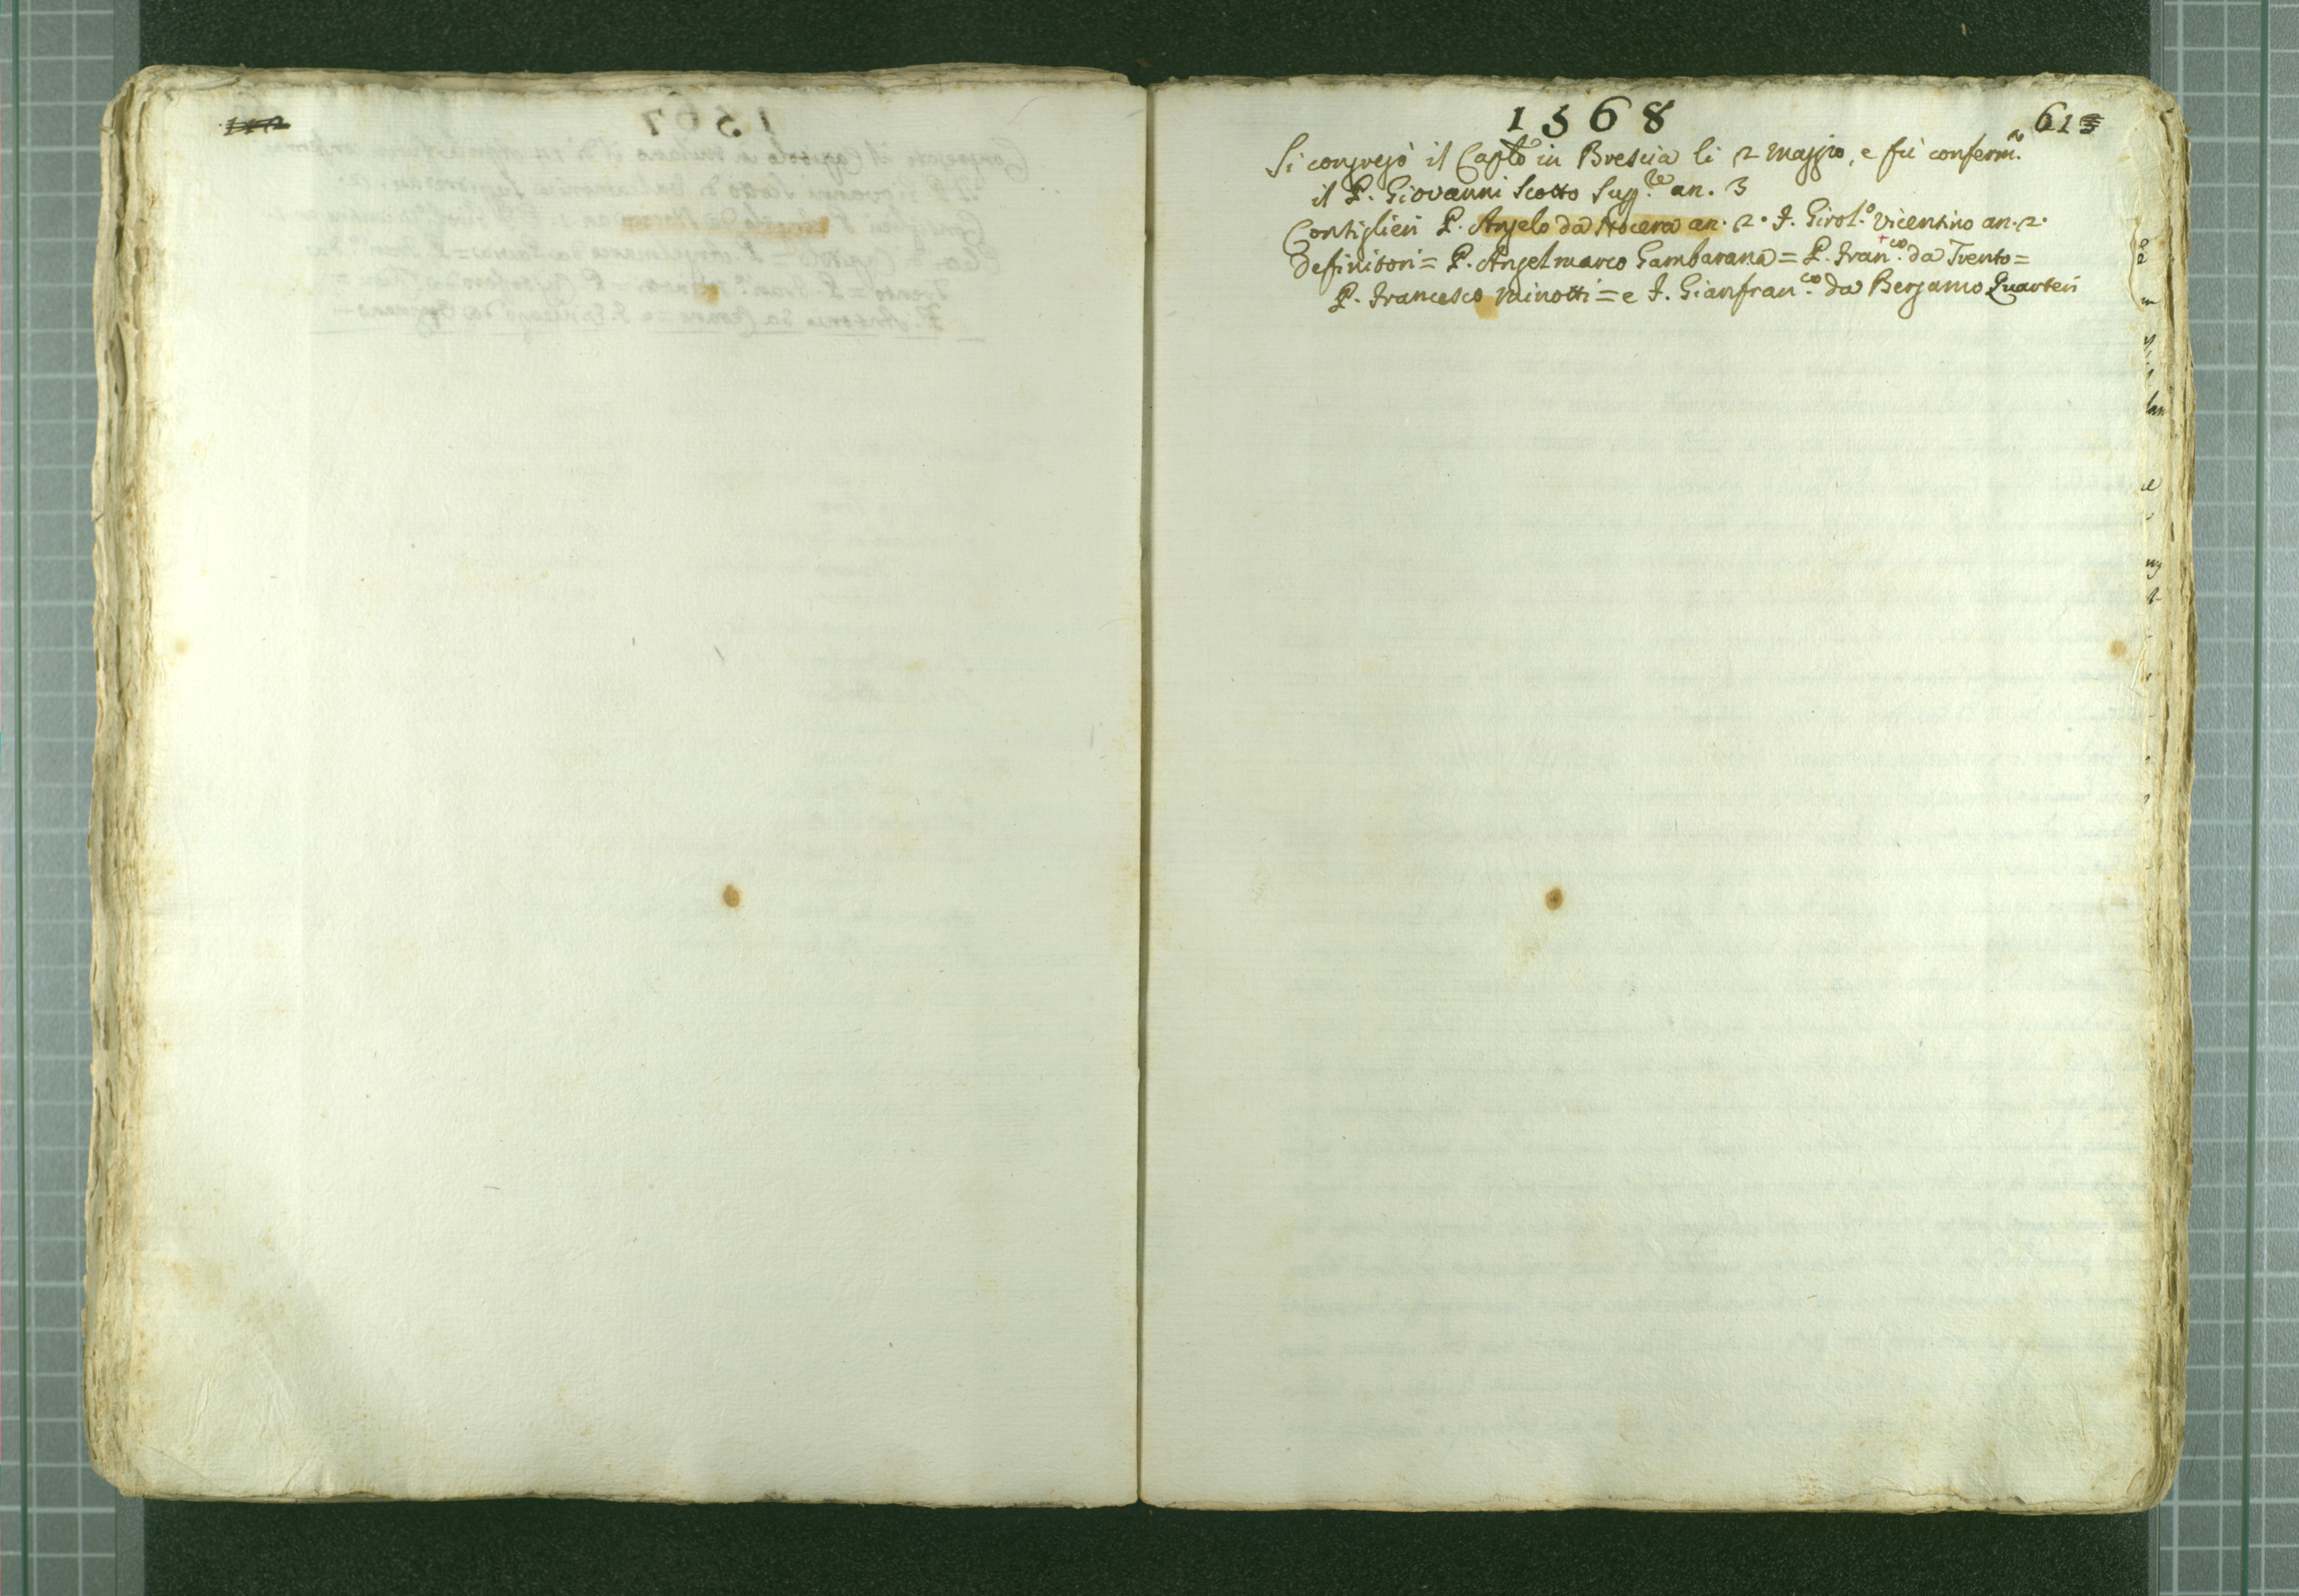 1568
61
Si congregò il Caplo in Brescia li 2 Maggio, e fù conferm.o
il P. Giovanni Scotto Sup.re an. 3
Consiglieri P. Angelo da Nocera an. 2. P. Girol.o Vicentino an. 2.
Definitori = P. Angelmarco Gambarana = P. Fran.co da Trento =
P. Francesco Minotti = e P. Gianfran.co da Bergamo Quarteri